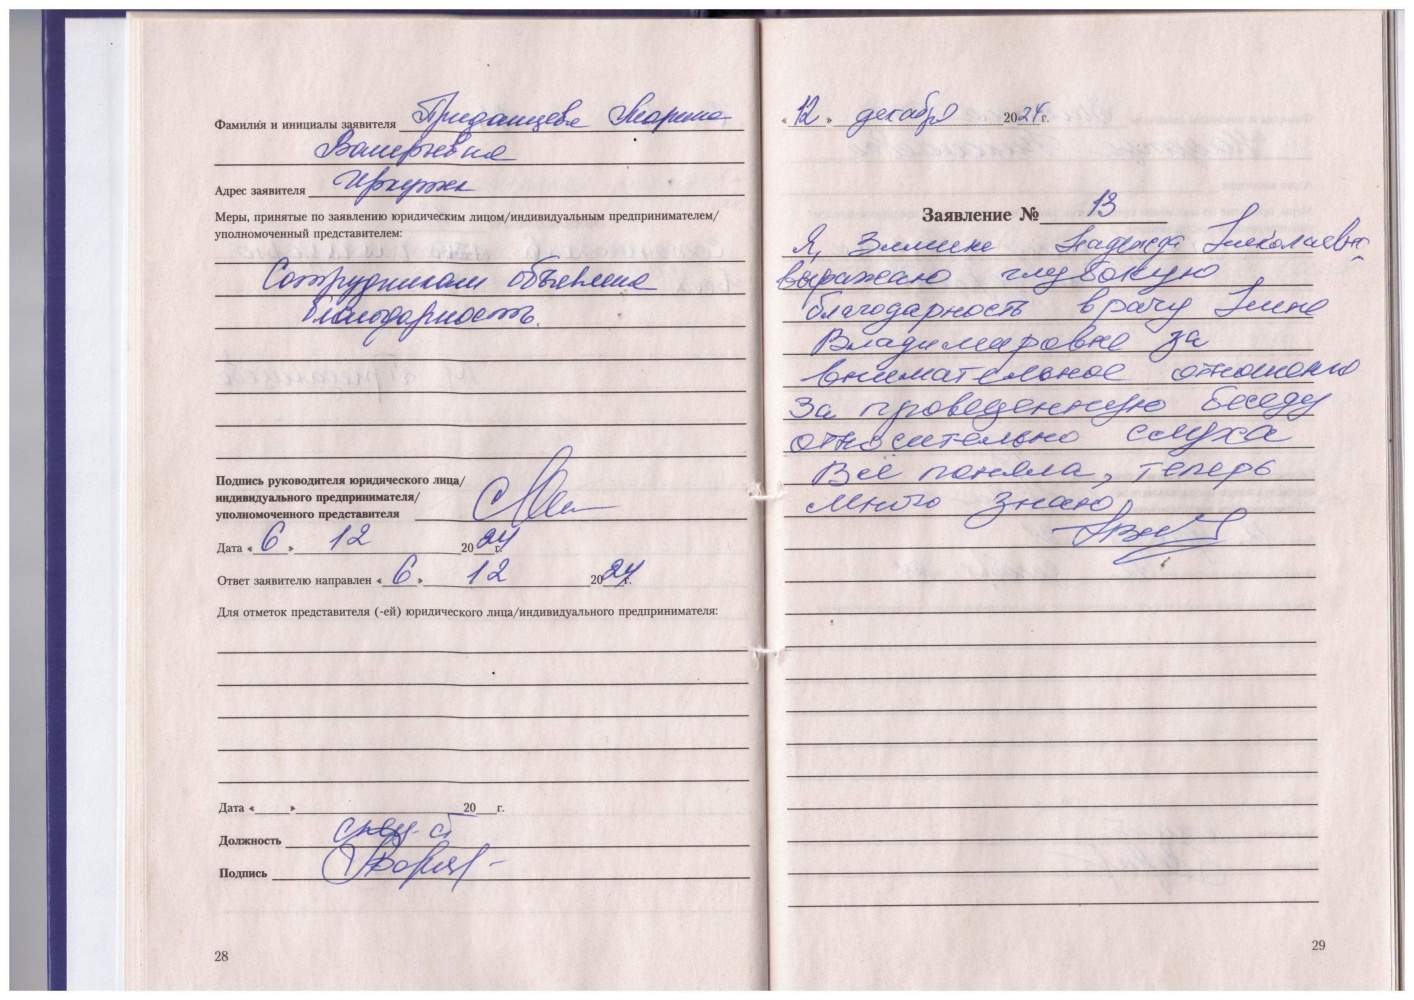 Фамилия и инициалы заявителя Приданцева Марина
Валерьевна
Адрес заявителя Иркутск
Меры, принятые по заявлению юридическим лицом/индивидуальным предпринимателем/
уполномоченный представителем:
Сотрудникам объявлена
благодарность.
Подпись руководителя юридического лица/
индивидуального предпринимателя/
уполномоченного представителя
Дата «6» 12 2024г.
Ответ заявителю направлен «6» 12 2024г.
Для отметок представителя (-ей) юридического лица/индивидуального предпринимателя:
Дата «____»____20__г.
Должность
Подпись
28
«12» декабря 2024г.
Заявление № 13
Я, Зимина Надежда Николаевна
выражаю глубокую
благодарность врачу Нине
Владимировне за
внимательное отношение
За проведенную беседу
относительно слуха
Все поняла, теперь
много знаю
29